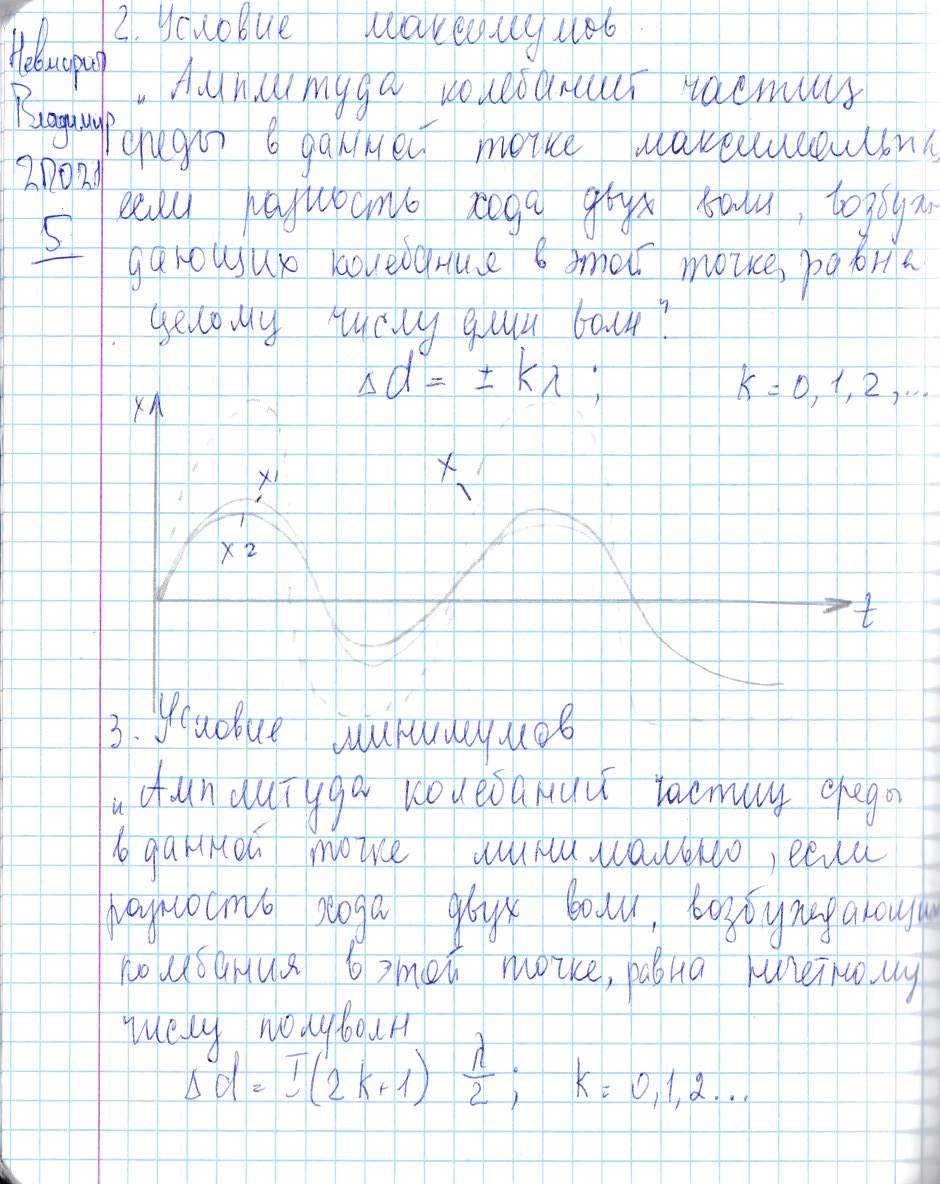 2. Условие максимумов
Невмирит
Владимир
2П021
5
„Амплитуда колебаний частиц
среды в данной точке максимальн
если разность хода двух волн, возбуж-
дающих колебания в этой точке, равна
целому числу длин волн"
Δd = ± kλ ; k = 0, 1, 2, ...
x
x1
x
x2
t
3. Условие минимумов
„Амплитуда колебаний частиц среды
в данной точке минимально, если
разность хода двух волн, возбуждающих
колбания в этой точке, равна ничетному
числу полуволн
Δd = ±(2k+1) λ/2 ; k = 0, 1, 2...